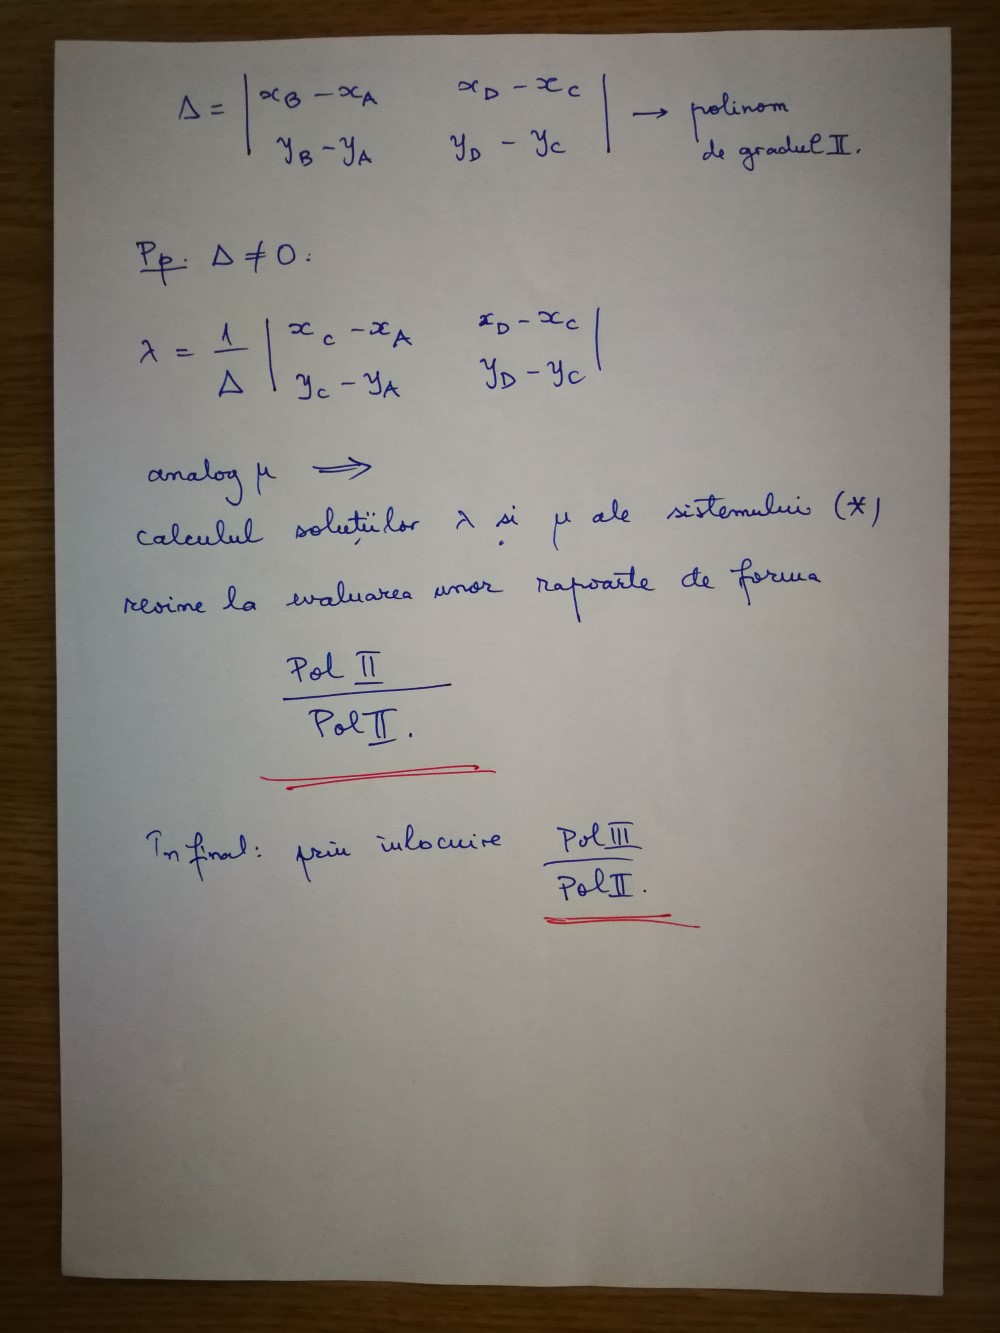 Δ = | x_B - x_A   x_D - x_C | → polinom
| y_B - y_A   y_D - y_C | de gradul II.
Pp. Δ ≠ 0.
λ = 1/Δ | x_C - x_A   x_D - x_C |
| y_C - y_A   y_D - y_C |
analog μ ⟹
calculul soluțiilor λ și μ ale sistemului (*)
revine la evaluarea unor rapoarte de forma
Pol II
Pol II.
În final: prin înlocuire Pol III
Pol II.